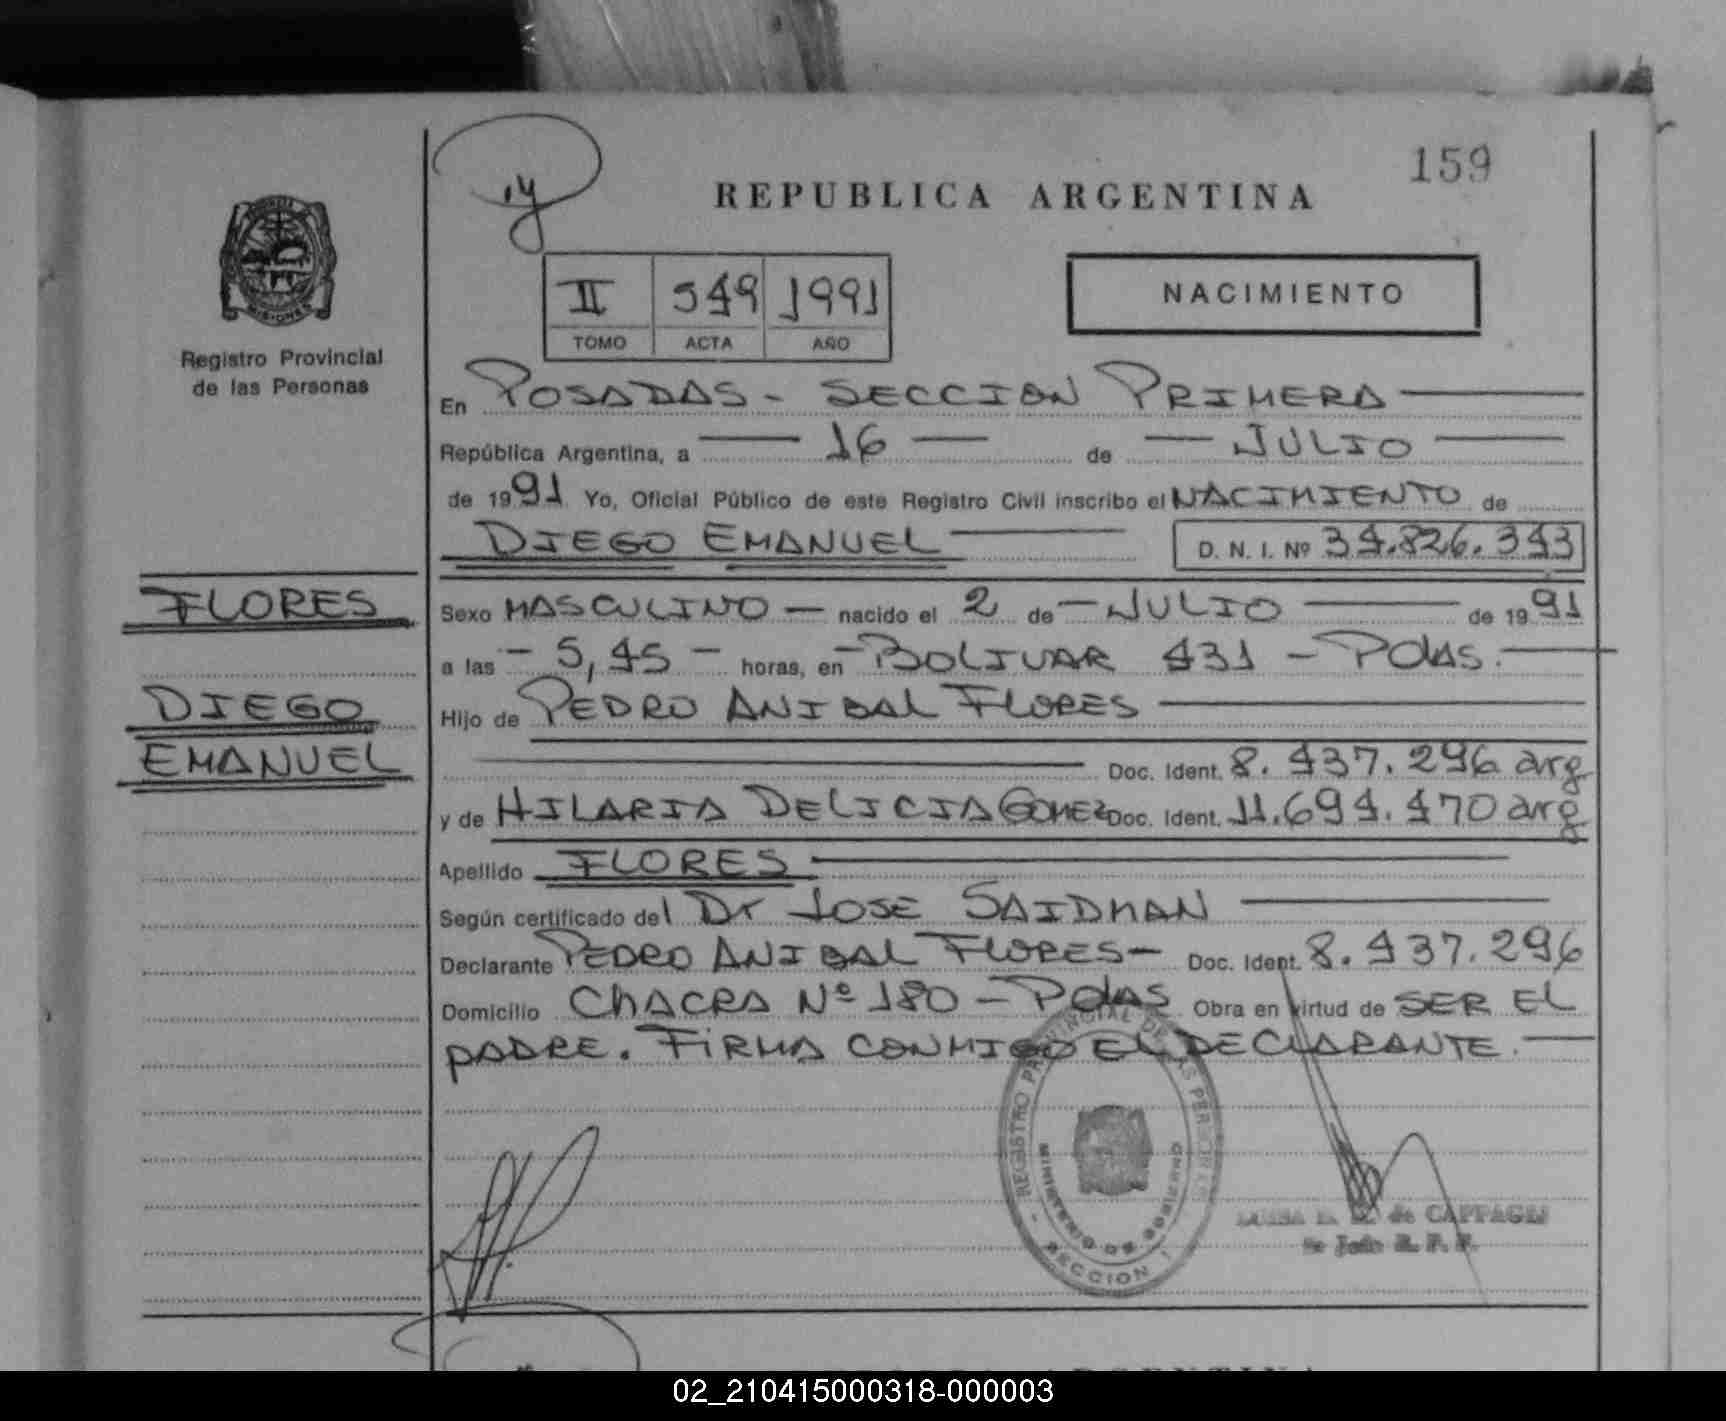 159
REPUBLICA ARGENTINA
II 549 1991
TOMO ACTA AÑO
NACIMIENTO
MISIONES
Registro Provincial
de las Personas
En POSADAS - SECCION PRIMERA
República Argentina, a 16 de JULIO
de 1991 Yo, Oficial Público de este Registro Civil inscribo el NACIMIENTO de
DIEGO EMANUEL D. N. I. Nº 34.826.343
FLORES
DIEGO
EMANUEL
Sexo MASCULINO — nacido el 2 de — JULIO de 1991
a las - 5,45 - horas, en - BOLIVAR 431 - Pdas.
Hijo de PEDRO ANIBAL FLORES
Doc. Ident. 8.437.296 arg
y de HILARIA DELICIA GOMEZ Doc. Ident. 11.694.470 arg
Apellido FLORES
Según certificado del Dr JOSE SAIDMAN
Declarante PEDRO ANIBAL FLORES - Doc. Ident. 8.437.296
Domicilio CHACRA Nº 180 - Pdas Obra en virtud de SER EL
PADRE. FIRMA CONMIGO EL DECLARANTE.
REGISTRO PROVINCIAL DE LAS PERSONAS
MINISTERIO DE GOBIERNO
SECCION I
de CAPPAGLI
02_210415000318-000003